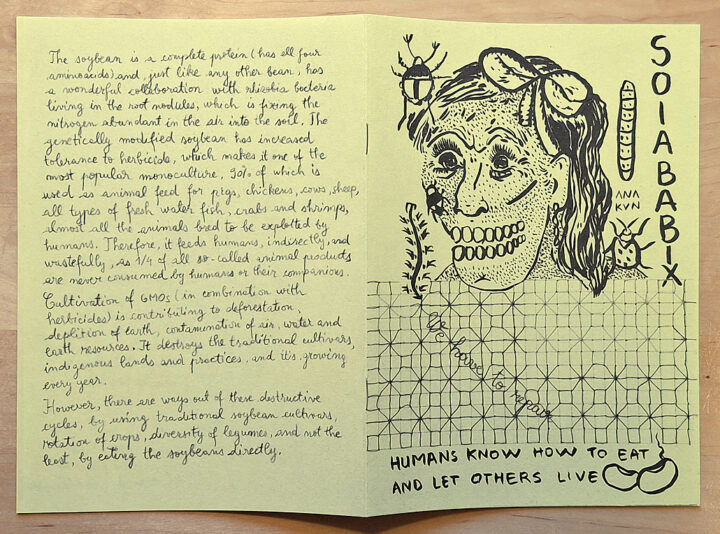 The soybean is a complete protein (has all four
aminoacids) and, just like any other bean, has
a wonderful collaboration with rhizobia bacteria
living in the root nodules, which is fixing the
nitrogen abundant in the air into the soil. The
genetically modified soybean has increased
tolerance to herbicids, which makes it one of the
most popular monoculture, 90% of which is
used as animal feed for pigs, chickens, cows, sheep,
all types of fresh water fish, crabs and shrimps,
almost all the animals bred to be exploited by
humans. Therefore, it feeds humans, indirectly, and
wastefully, as 1/4 of all so-called animal products
are never consumed by humans or their companions.
Cultivation of GMOs (in combination with
herbicides) is contributing to deforestation,
deplition of earth, contamination of air, water and
earth resources. It destroys the traditional cultivars,
indigenous lands and practices, and it's growing
every year.
However, there are ways out of these destructive
cycles, by using traditional soybean cultivars,
rotation of crops, diversity of legumes, and not the
least, by eating the soybeans directly.
SOIABABIX
ANA
KVN
We have to repair
HUMANS KNOW HOW TO EAT
AND LET OTHERS LIVE